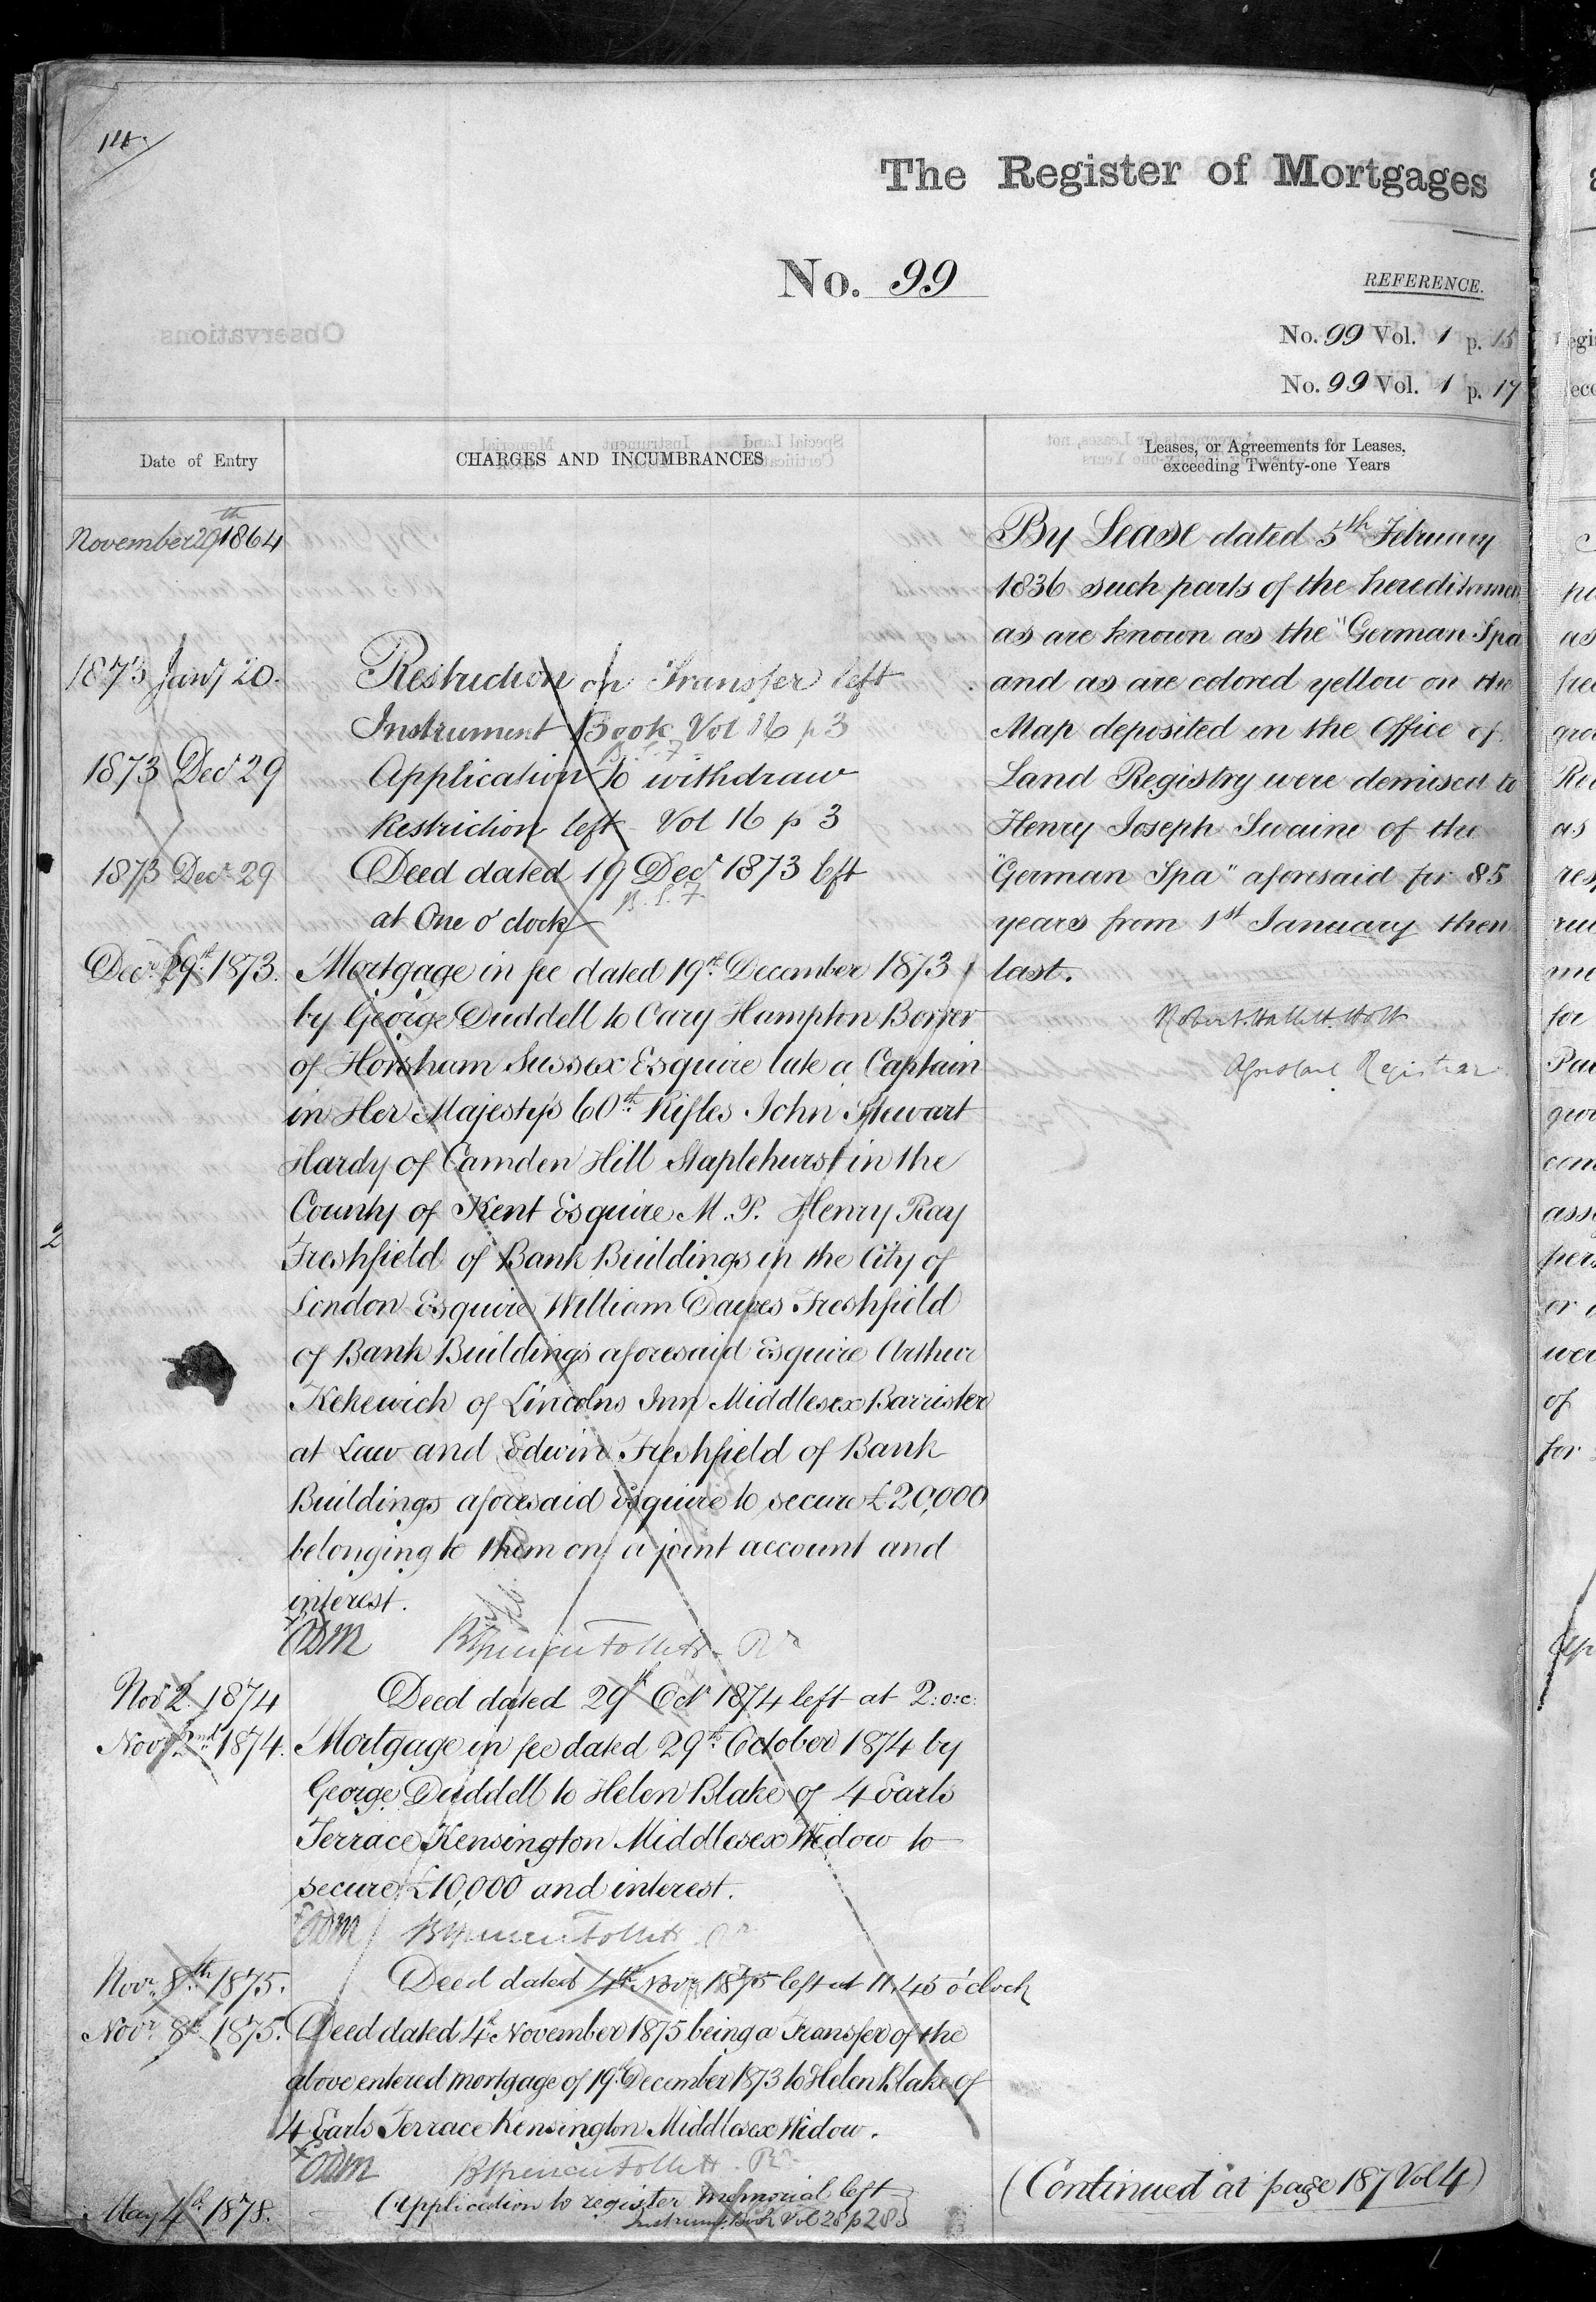 14.
The Register of Mortgages
No. 99
REFERENCE.
No. 99 Vol. 1 p. 15
No. 99 Vol. 1 p. 17
Date of Entry
CHARGES AND INCUMBRANCES
Leases, or Agreements for Leases,
exceeding Twenty-one Years
November 29th 1864
By Lease dated 5th February
1836 such parts of the hereditamen
as are known as the "German Spa
and as are colored yellow on the
Map deposited in the Office of
Land Registry were demised to
Henry Joseph Swaine of the
"German Spa" aforesaid for 85
years from 1st January then
last.
Robert Hallett Holt
Assistant Registrar
1873 Jany 20.
Restriction on Transfer left
Instrument Book Vol 16 p 3
1873 Decr 29
Application to withdraw
Restriction left Vol 16 p 3
1873 Decr 29
Deed dated 19 Decr 1873 left
at One o'clock
Decr 29th 1873.
Mortgage in fee dated 19th December 1873
by George Duddell to Cary Hampton Borrer
of Horsham Sussex Esquire late a Captain
in Her Majesty's 60th Rifles John Stewart
Hardy of Camden Hill Staplehurst in the
County of Kent Esquire M. P. Henry Ray
Freshfield of Bank Buildings in the City of
London Esquire William Dawes Freshfield
of Bank Buildings aforesaid Esquire Arthur
Kekewich of Lincolns Inn Middlesex Barrister
at Law and Edwin Freshfield of Bank
Buildings aforesaid Esquire to secure £20,000
belonging to them on a joint account and
interest.
BSpencer Follett Rr
Novr 2 1874
Deed dated 29th Octr 1874 left at 2:o:c:
Novr 2nd 1874.
Mortgage in fee dated 29th October 1874 by
George Duddell to Helen Blake of 4 Earls
Terrace Kensington Middlesex Widow to
secure £10,000 and interest.
BSpencer Follett Rr
Novr 8th 1875.
Deed dated 4th Novr 1875 left at 11.45 o'clock
Novr 8th 1875.
Deed dated 4th November 1875 being a Transfer of the
above entered mortgage of 19th December 1873 to Helen Blake of
4 Earls Terrace Kensington Middlesex Widow.
BSpencer Follett Rr
May 4th 1878.
Application to register memorial left
Instrumt Book Vol 28 p 28
(Continued at page 187 Vol 4)